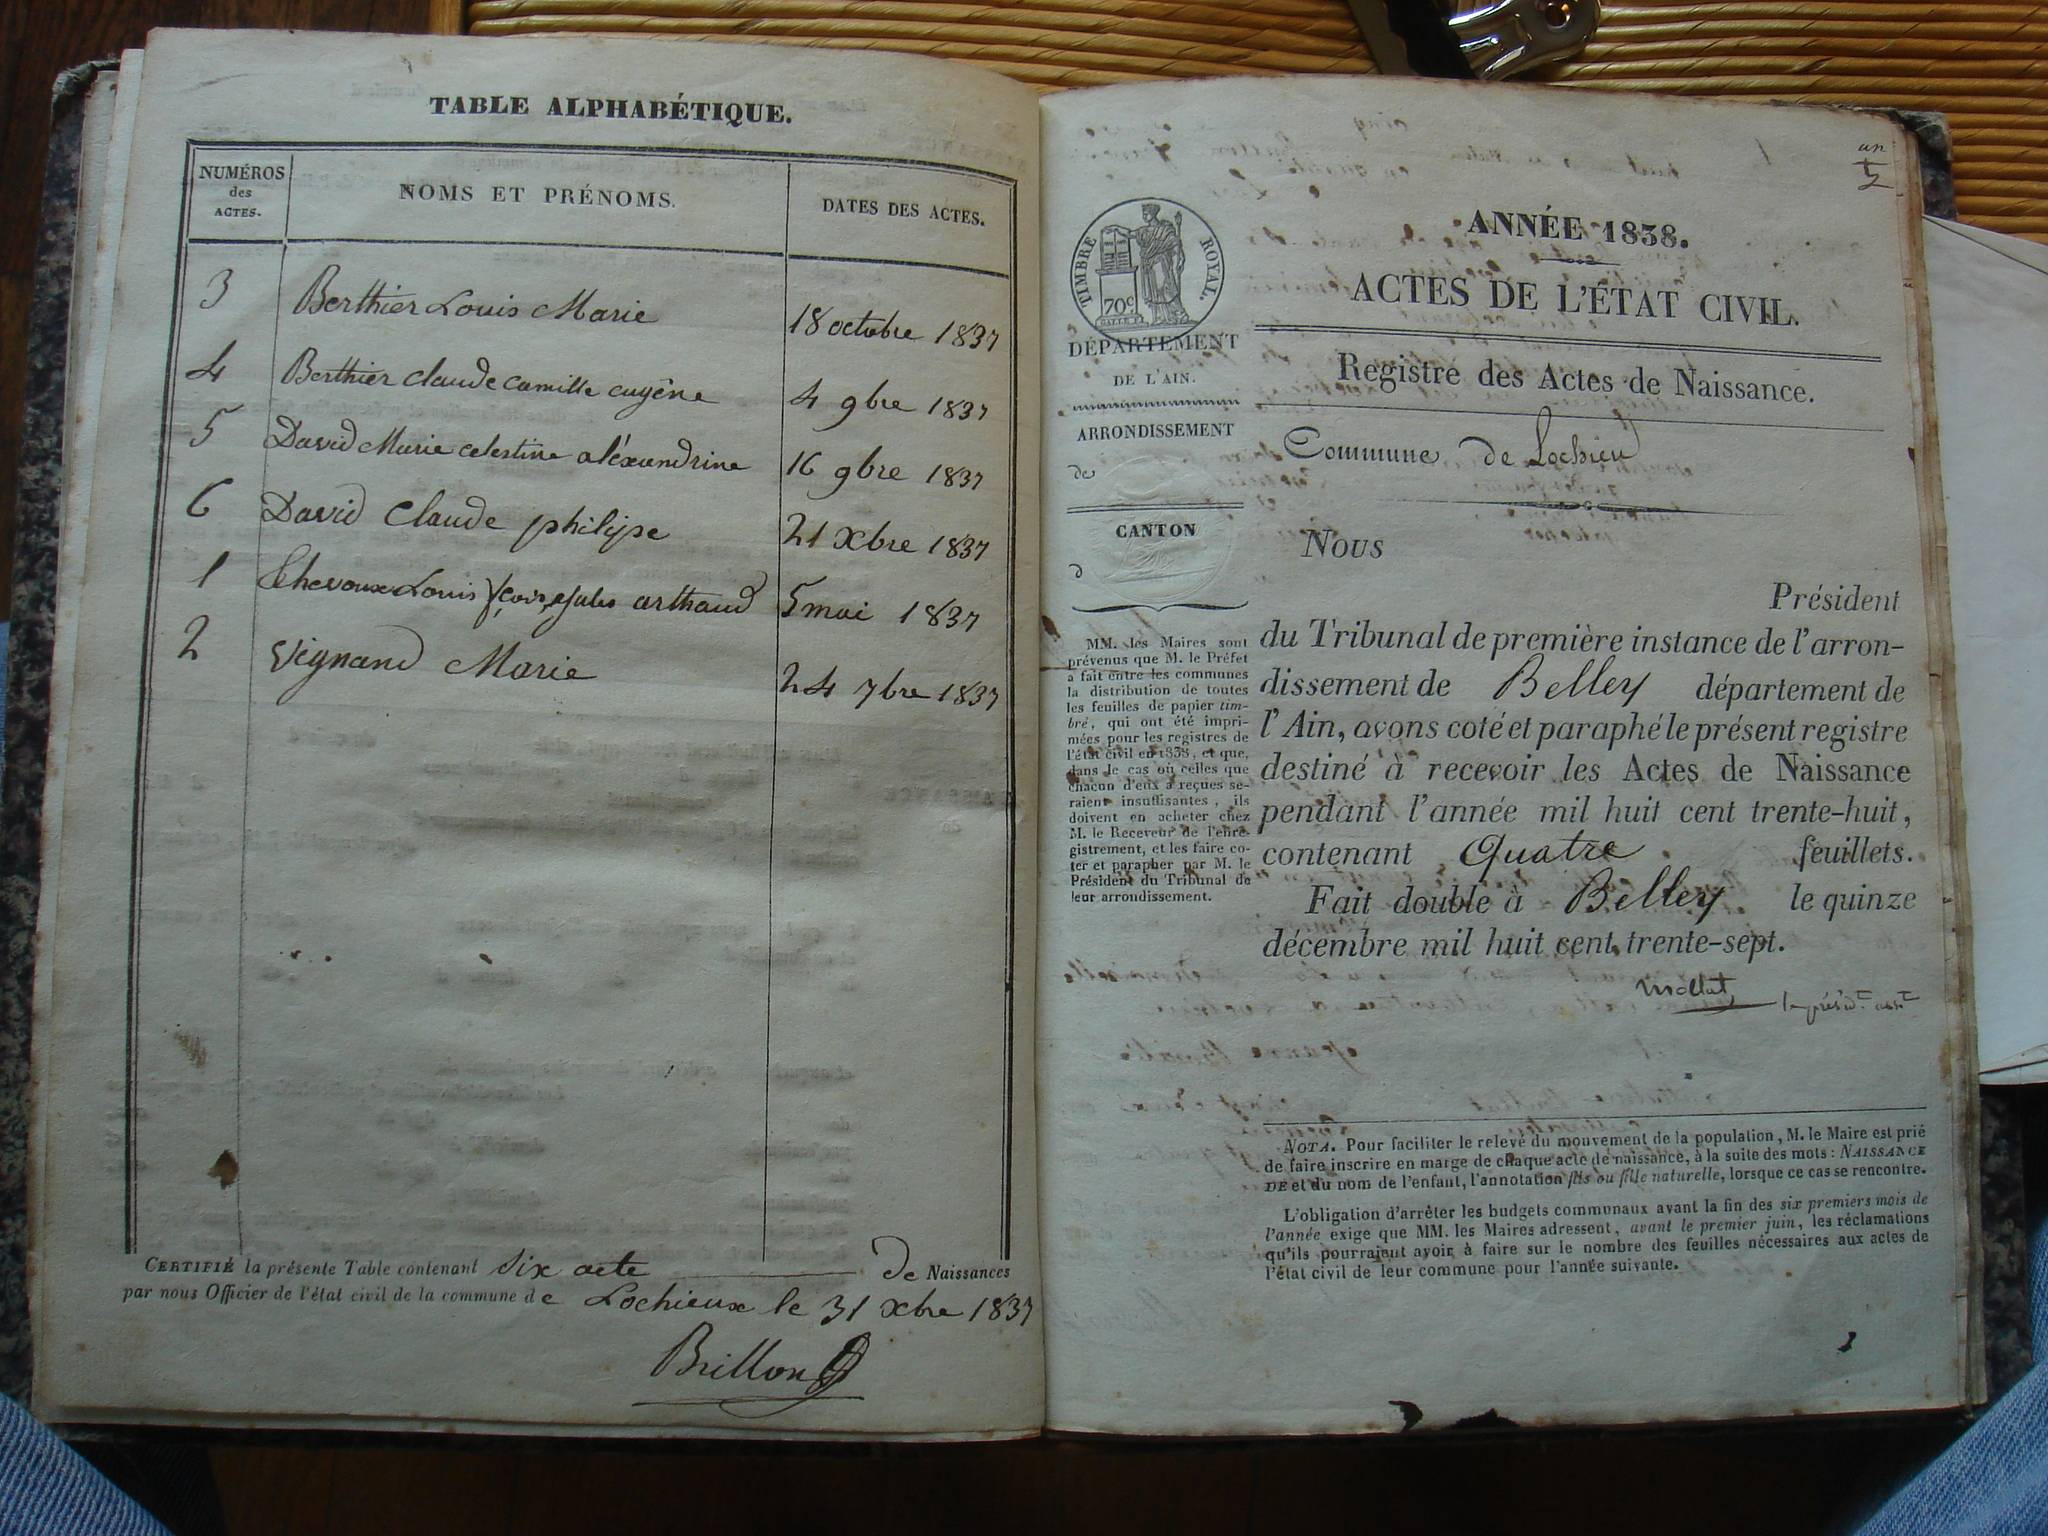 TABLE ALPHABÉTIQUE.
NUMÉROS
des
ACTES.
NOMS ET PRÉNOMS.
DATES DES ACTES.
3 Berthier Louis Marie 18 octobre 1837
4 Berthier claude camille eugêne 4 9bre 1837
5 David Marie celestine aléxandrine 16 9bre 1837
6 David Claude philipe 21 Xbre 1837
1 Louis arthaud 5 mai 1837
2 Vignand Marie 24 7bre 1837
CERTIFIÉ la présente Table contenant six acte de Naissances
par nous Officier de l'état civil de la commune de Lochieux le 31 xbre 1837
Brillon
un
TIMBRE ROYAL.
70c
DÉPARTEMENT
DE L'AIN.
ARRONDISSEMENT
de
CANTON
d
MM. les Maires sont
prévenus que M. le Préfet
a fait entre les communes
la distribution de toutes
les feuilles de papier tim-
bré, qui ont été impri-
mées pour les registres de
l'état civil en 1838, et que,
dans le cas où celles que
chacun d'eux a reçues se-
raient insuffisantes, ils
doivent en acheter chez
M. le Receveur de l'enre-
gistrement, et les faire co-
ter et parapher par M. le
Président du Tribunal de
leur arrondissement.
ANNÉE 1838.
ACTES DE L'ÉTAT CIVIL.
Registre des Actes de Naissance.
Commune de Lochieu
Nous
Président
du Tribunal de première instance de l'arron-
dissement de Belley département de
l'Ain, avons coté et paraphé le présent registre
destiné à recevoir les Actes de Naissance
pendant l'année mil huit cent trente-huit,
contenant Quatre feuillets.
Fait double à Belley le quinze
décembre mil huit cent trente-sept.
Mollat
NOTA. Pour faciliter le relevé du mouvement de la population, M. le Maire est prié
de faire inscrire en marge de chaque acte de naissance, à la suite des mots: NAISSANCE
DE et du nom de l'enfant, l'annotation fils ou fille naturelle, lorsque ce cas se rencontre.
L'obligation d'arrêter les budgets communaux avant la fin des six premiers mois de
l'année exige que MM. les Maires adressent, avant le premier juin, les réclamations
qu'ils pourraient avoir à faire sur le nombre des feuilles nécessaires aux actes de
l'état civil de leur commune pour l'année suivante.